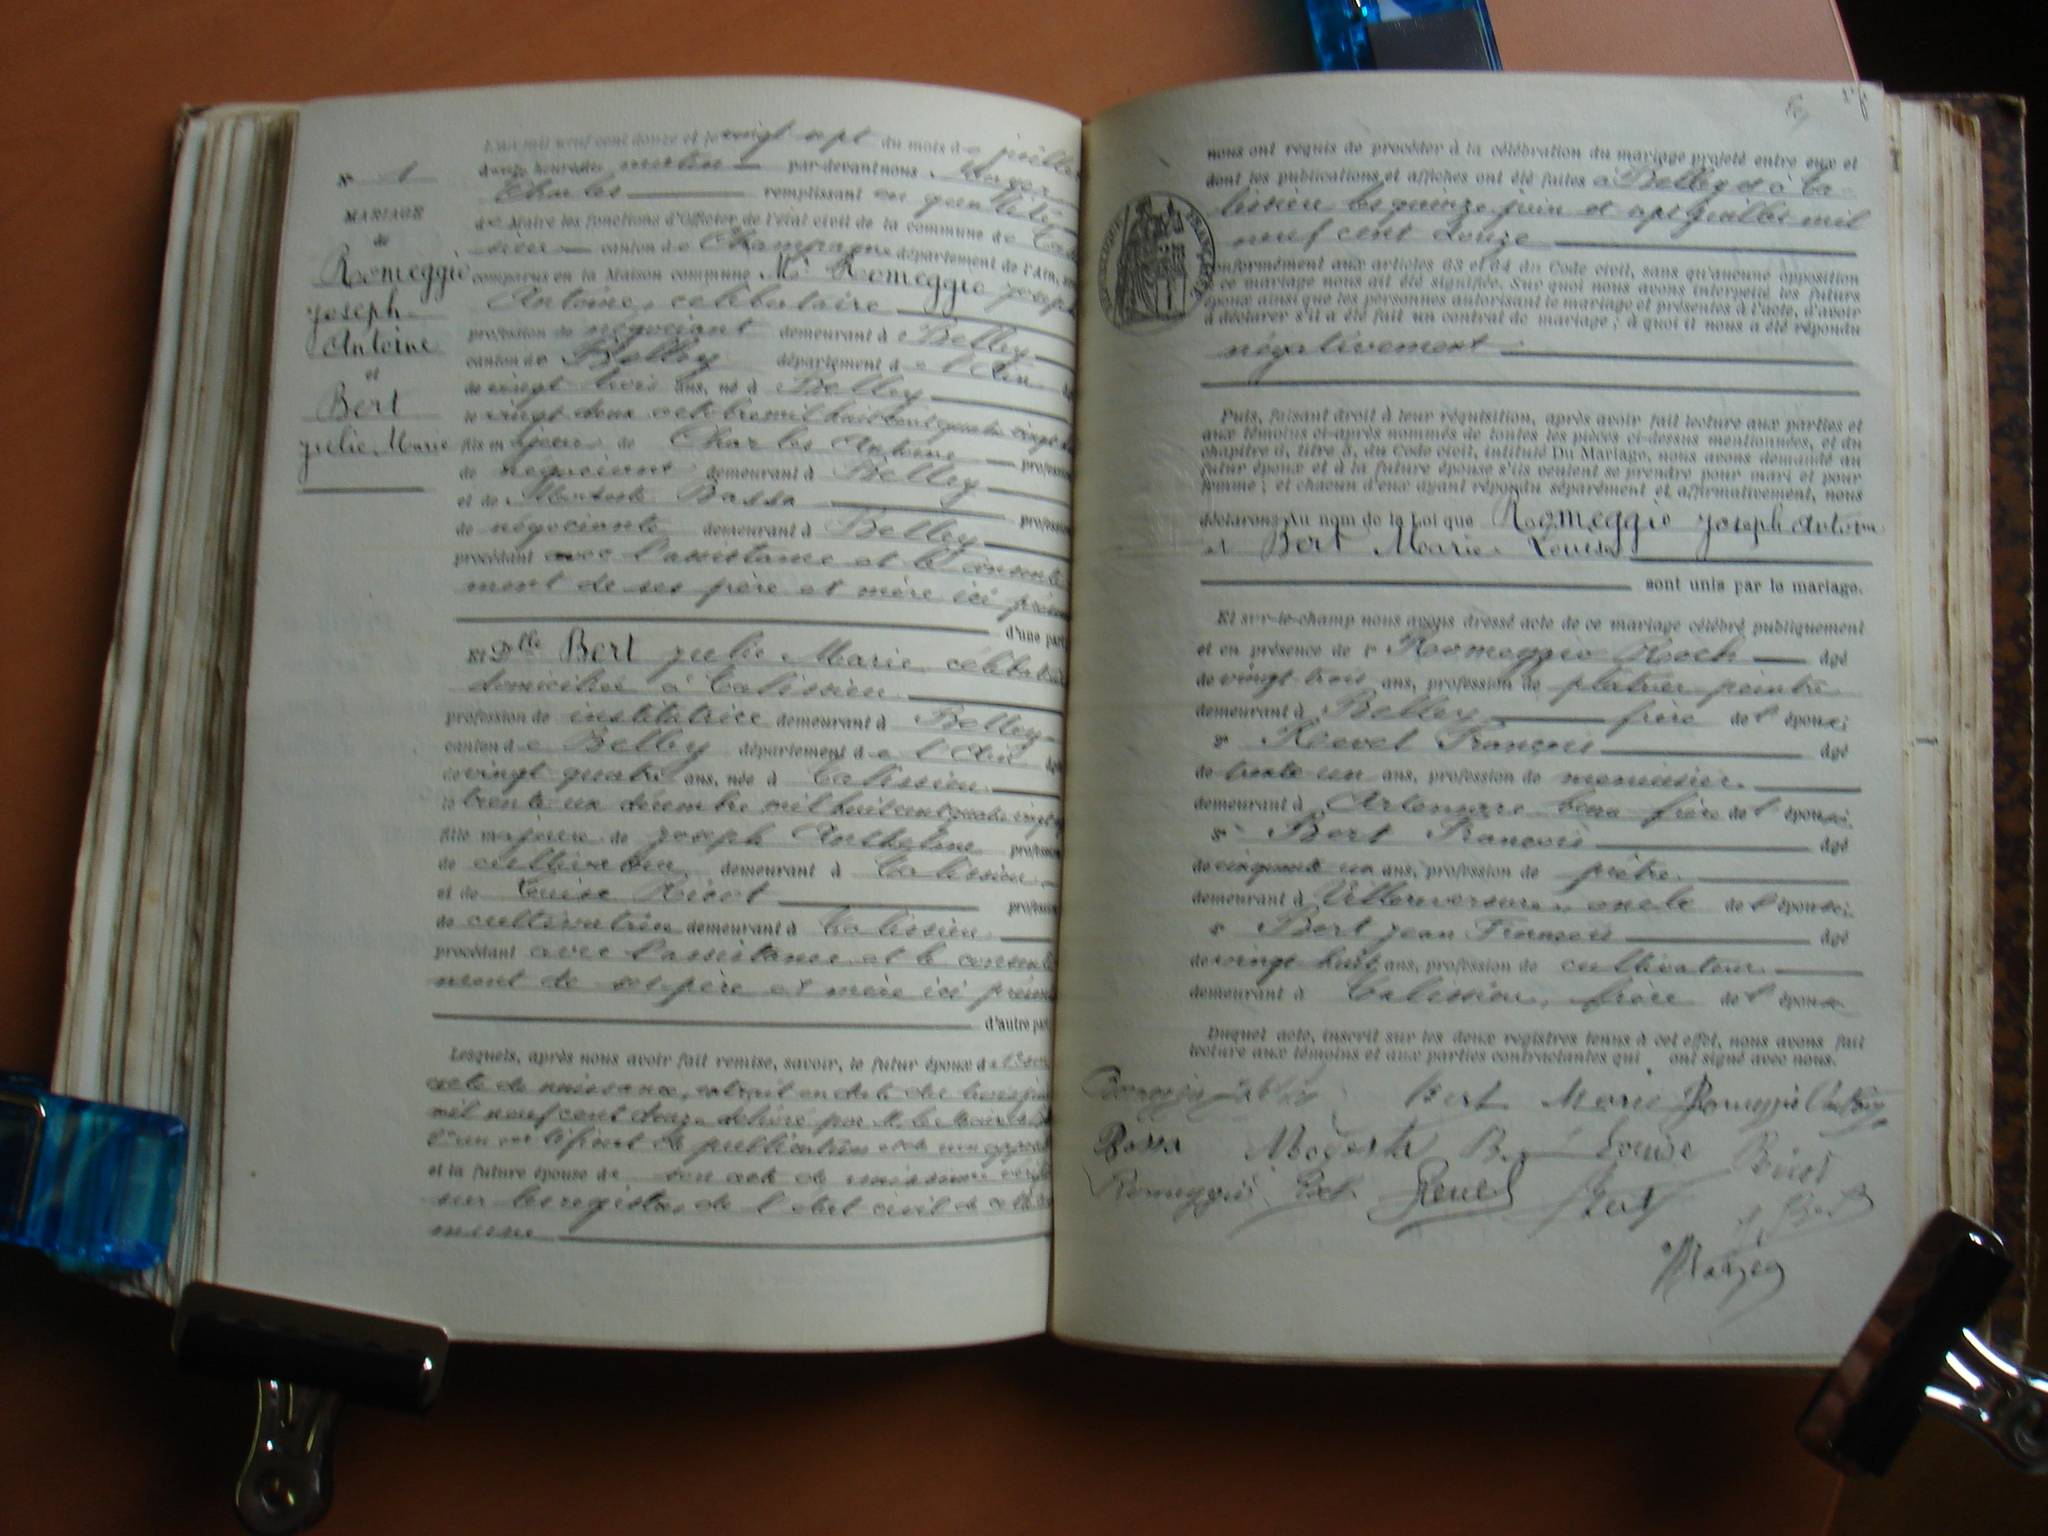 L'an mil neuf cent douze et le vingt sept du mois de juillet
heures du matin par-devant nous
Charles remplissant en qualité
de Maire les fonctions d'Officier de l'état civil de la commune de Talis
sieu canton de Champagne département de l'Ain,
N° 1
MARIAGE
de
Romeggio
Joseph
Antoine
et
Bert
Julie Marie
comparus en la Maison commune Mr Romeggio Joseph
Antoine, célibataire
profession de négociant demeurant à Belley
canton de Belley département de l'Ain
de vingt trois ans, né à Belley
le vingt deux octobre mil huit cent quatre vingt
fils majeur de Charles Antoine profession
de négociant demeurant à Belley
et de Modeste Bassa profession
de négociante demeurant à Belley
procédant avec l'assistance et le consente
ment de ses père et mère ici présents
d'une part
Et Dlle Bert Julie Marie célibataire
domiciliée à Talissieu
profession de institutrice demeurant à Belley
canton de Belley département de l'Ain âgée
de vingt quatre ans, née à Talissieu
le trente un décembre mil huit cent quatre vingt
fille majeure de Joseph Anthelme profession
de cultivateur demeurant à Talissieu
et de Louise profession
de cultivatrice demeurant à Talissieu
procédant avec l'assistance et le consente
ment de ses père et mère ici présents
d'autre part
Lesquels, après nous avoir fait remise, savoir, le futur époux de
acte de naissance, extrait en date du trois juin
mil neuf cent douze délivré par M. le Maire de
certificat de publication et de non opposition
et la future épouse de son acte de naissance
sur les registres de l'état civil de
mune
nous ont requis de procéder à la célébration du mariage projeté entre eux et
dont les publications et affiches ont été faites à Belley et à Ta-
lissieu les quinze juin et sept juillet mil
neuf cent douze
conformément aux articles 63 et 64 du Code civil, sans qu'aucune opposition
à ce mariage nous ait été signifiée. Sur quoi nous avons interpellé les futurs
époux ainsi que les personnes autorisant le mariage et présentes à l'acte, d'avoir
à déclarer s'il a été fait un contrat de mariage ; à quoi il nous a été répondu
négativement
Puis, faisant droit à leur réquisition, après avoir fait lecture aux parties et
aux témoins ci-après nommés de toutes les pièces ci-dessus mentionnées, et du
chapitre 6, titre 5, du Code civil, intitulé Du Mariage, nous avons demandé au
futur époux et à la future épouse s'ils veulent se prendre pour mari et pour
femme ; et chacun d'eux ayant répondu séparément et affirmativement, nous
déclarons au nom de la Loi que Romeggio Joseph Antoine
et Bert Marie Louise
sont unis par le mariage.
Et sur-le-champ nous avons dressé acte de ce mariage célébré publiquement
et en présence de 1° Romeggio Roch âgé
de vingt trois ans, profession de plâtrier peintre
demeurant à Belley frère de l'époux;
2° Revel François âgé
de trente un ans, profession de menuisier
demeurant à Artemare beau frère de l'épouse;
3° Bert François âgé
de cinquante un ans, profession de prêtre
demeurant à Villereversure, oncle de l'épouse;
4° Bert Jean François âgé
de vingt huit ans, profession de cultivateur
demeurant à Talissieu, frère de l'épouse
Duquel acte, inscrit sur les deux registres tenus à cet effet, nous avons fait
lecture aux témoins et aux parties contractantes qui ont signé avec nous.
Bert Marie Romeggio Antoine
Bassa Modesta Louise
Romeggio Revel Bert